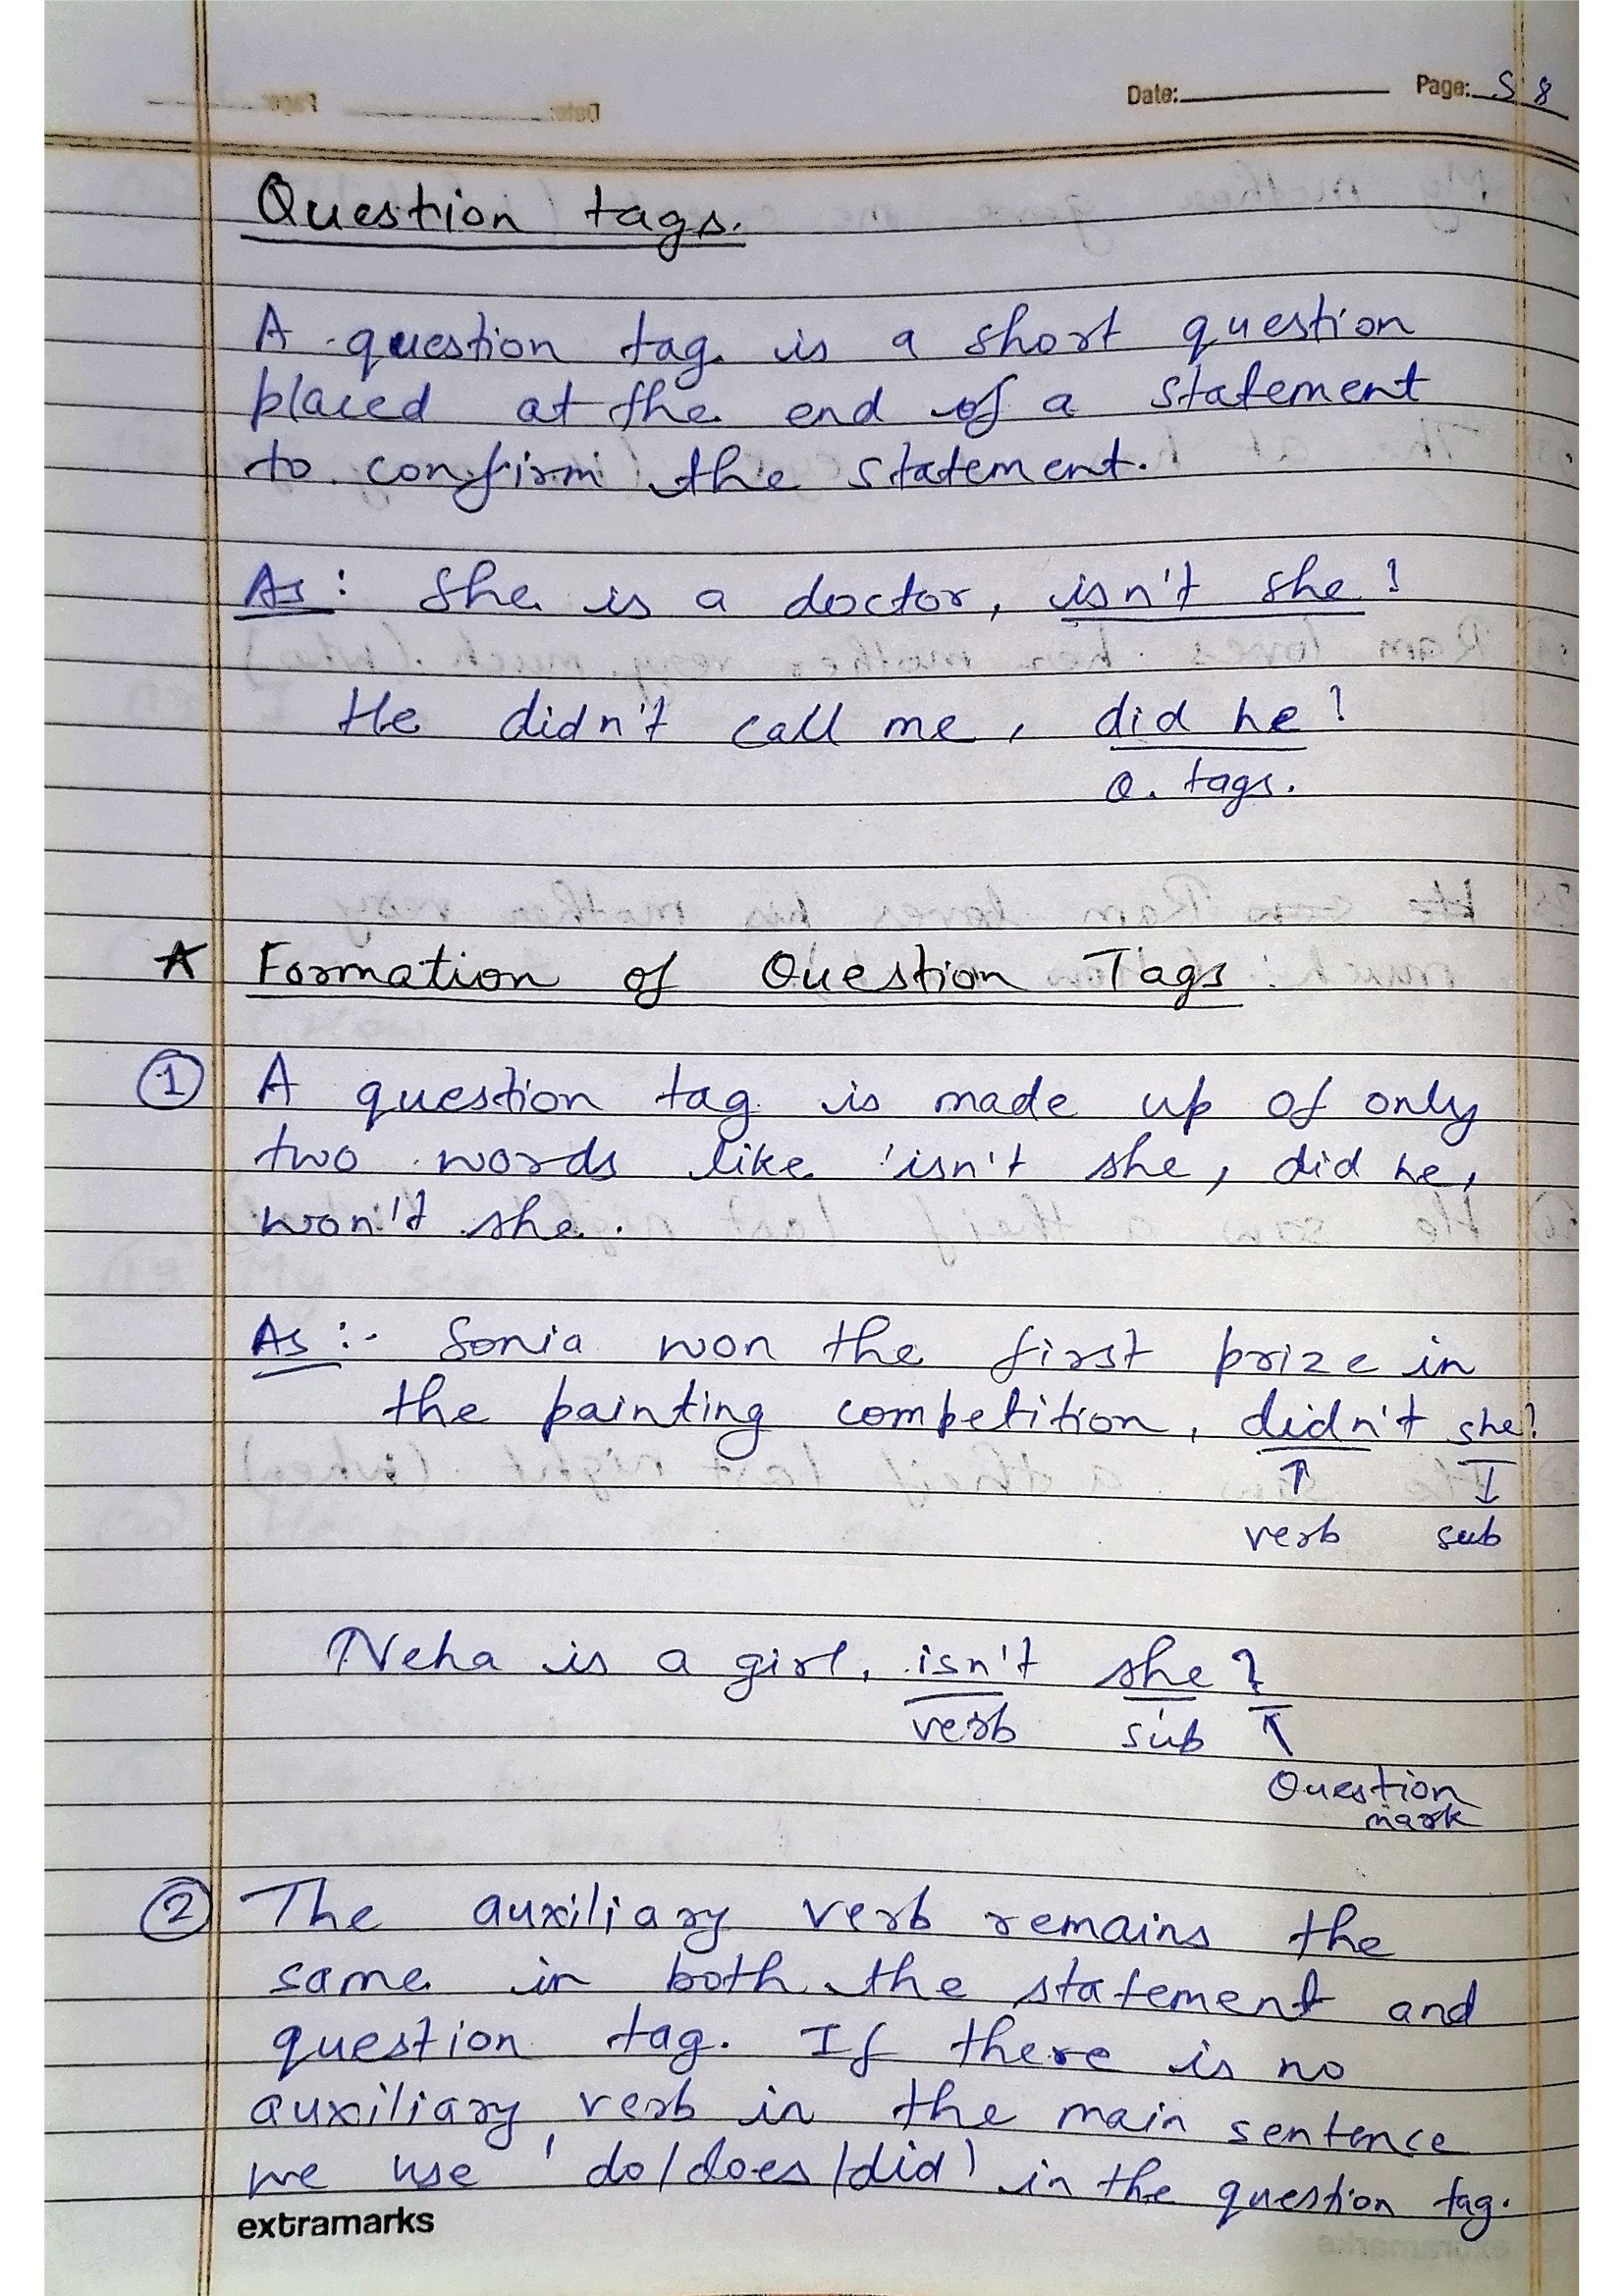 Date: Page: 58
Question tags.
A question tag is a short question
placed at the end of a statement
to confirm the statement.
As: She is a doctor, isn't she?
He didn't call me, did he?
Q. tags.
Formation of Question Tags
① A question tag is made up of only
two words like 'isn't she, did he,
won't she.
As :- Sonia won the first prize in
the painting competition, didn't she?
↑ ↓
verb sub
Neha is a girl, isn't she?
verb sub ↑
Question
mark
② The auxiliary verb remains the
same in both the statement and
question tag. If there is no
auxiliary verb in the main sentence
we use 'do/does/did' in the question tag.
extramarks